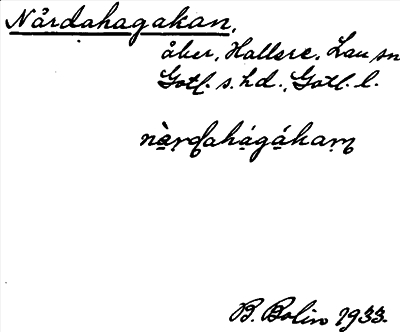 Nårdahagakan,
åker, Hallsre, Lau sn
Gotl. s. hd., Gotl. l.
nàrdahágákam
B. Bolin 1933.